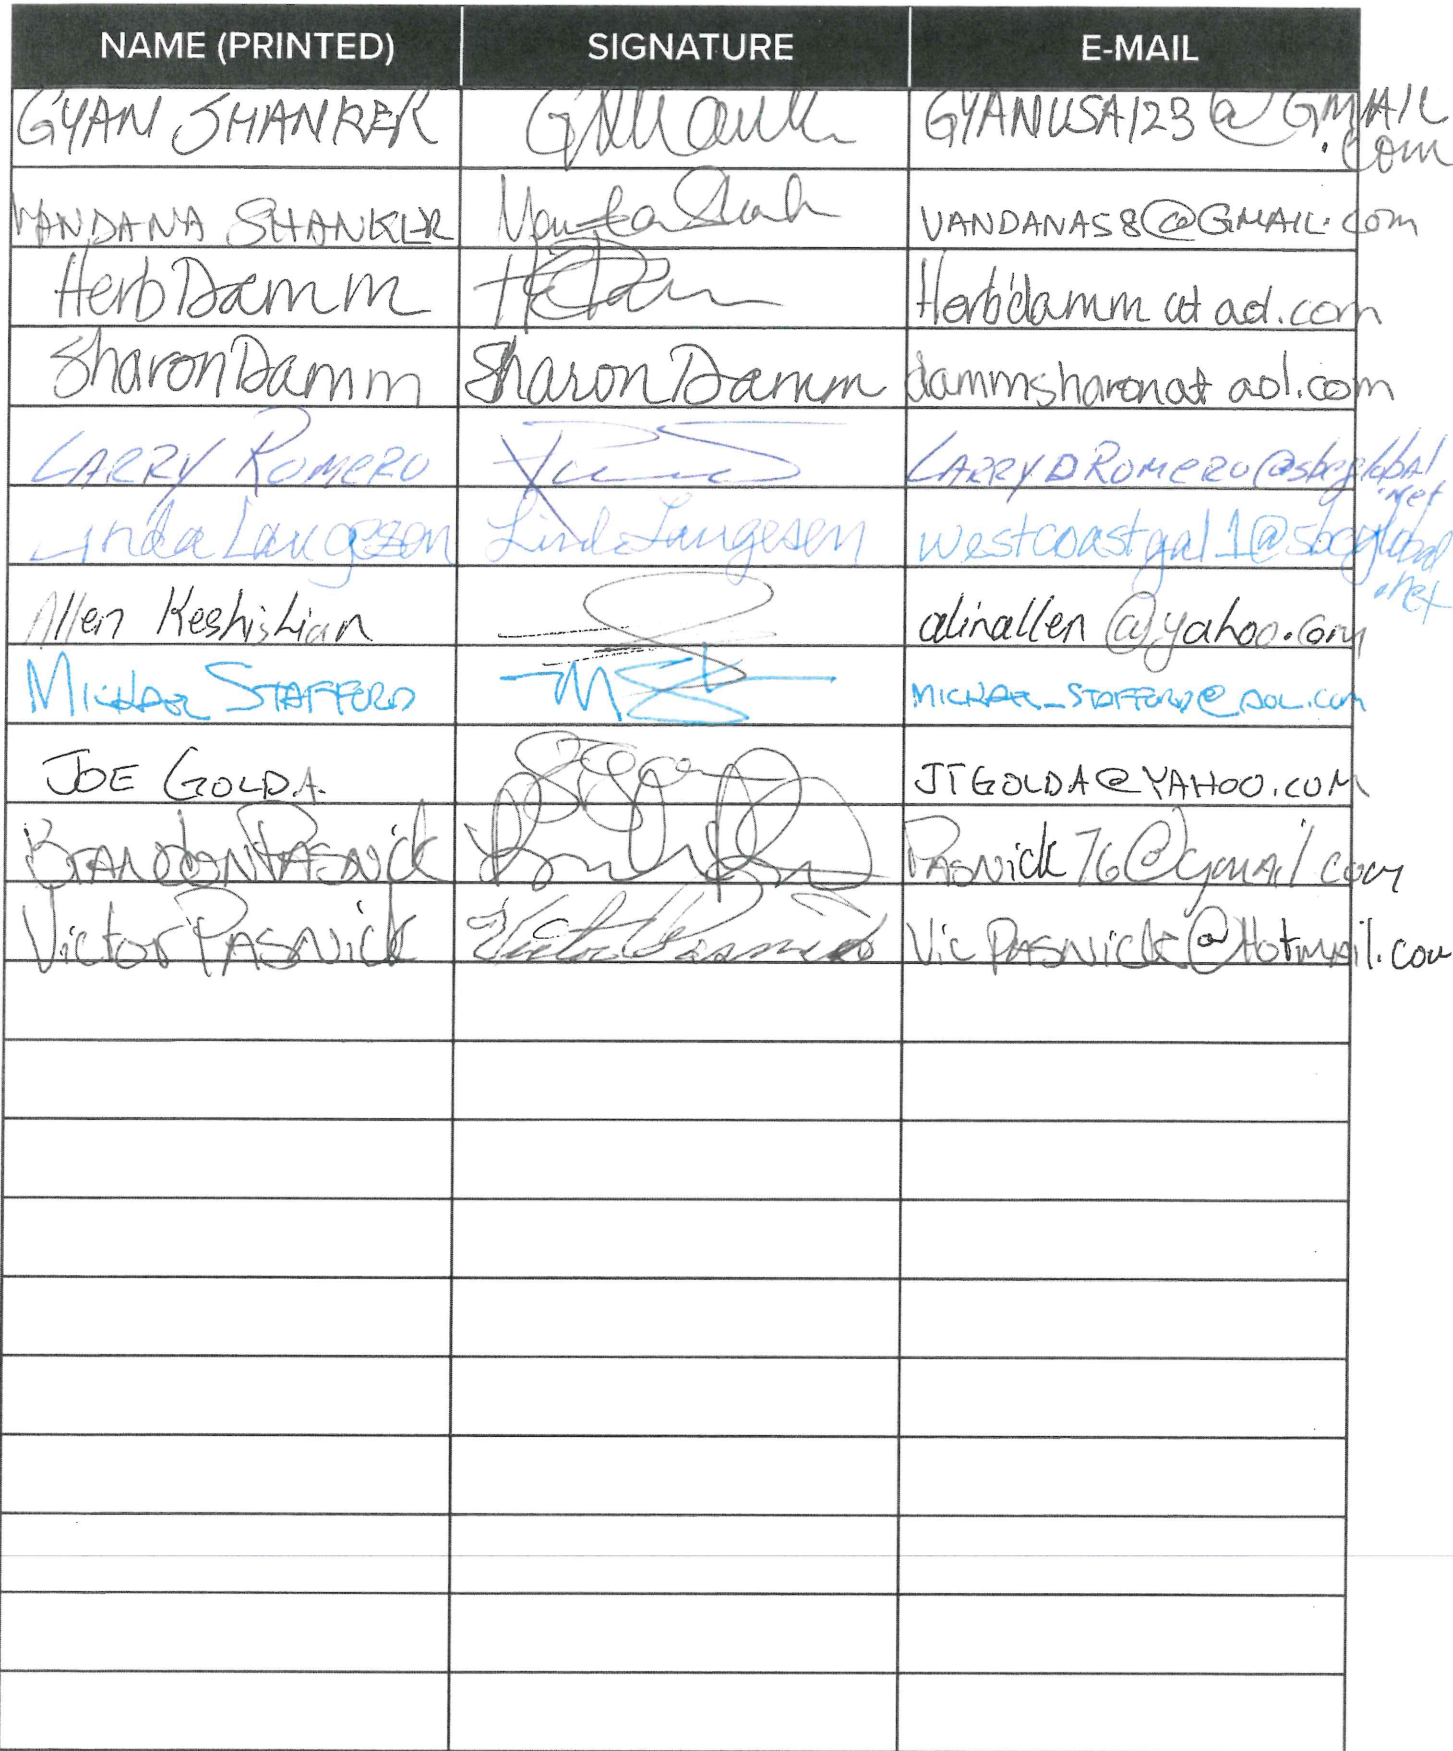 NAME (PRINTED) SIGNATURE E-MAIL
GYAN SHANKER GYANUSA123@GMAIL
.com
VANDANA SHANKER VANDANAS8@GMAIL.com
Herb Damm Herbdamm at aol.com
Sharon Damm Sharon Damm dammsharon at aol.com
LARRY ROMERO LARRYDROMERO@sbcglobal
.net
Linda Laugesen Linda Laugesen westcoastgal1@sbcglobal
.net
Allen Keshishian alinallen@yahoo.com
MICHAEL STAFFORD MICHAEL_STAFFORD@AOL.com
JOE GOLDA. JTGOLDA@YAHOO.COM
BRANDON PASNICK PASNICK76@gmail com
Victor PASNICK Victor Pasnick VicPASNICK@Hotmail.com